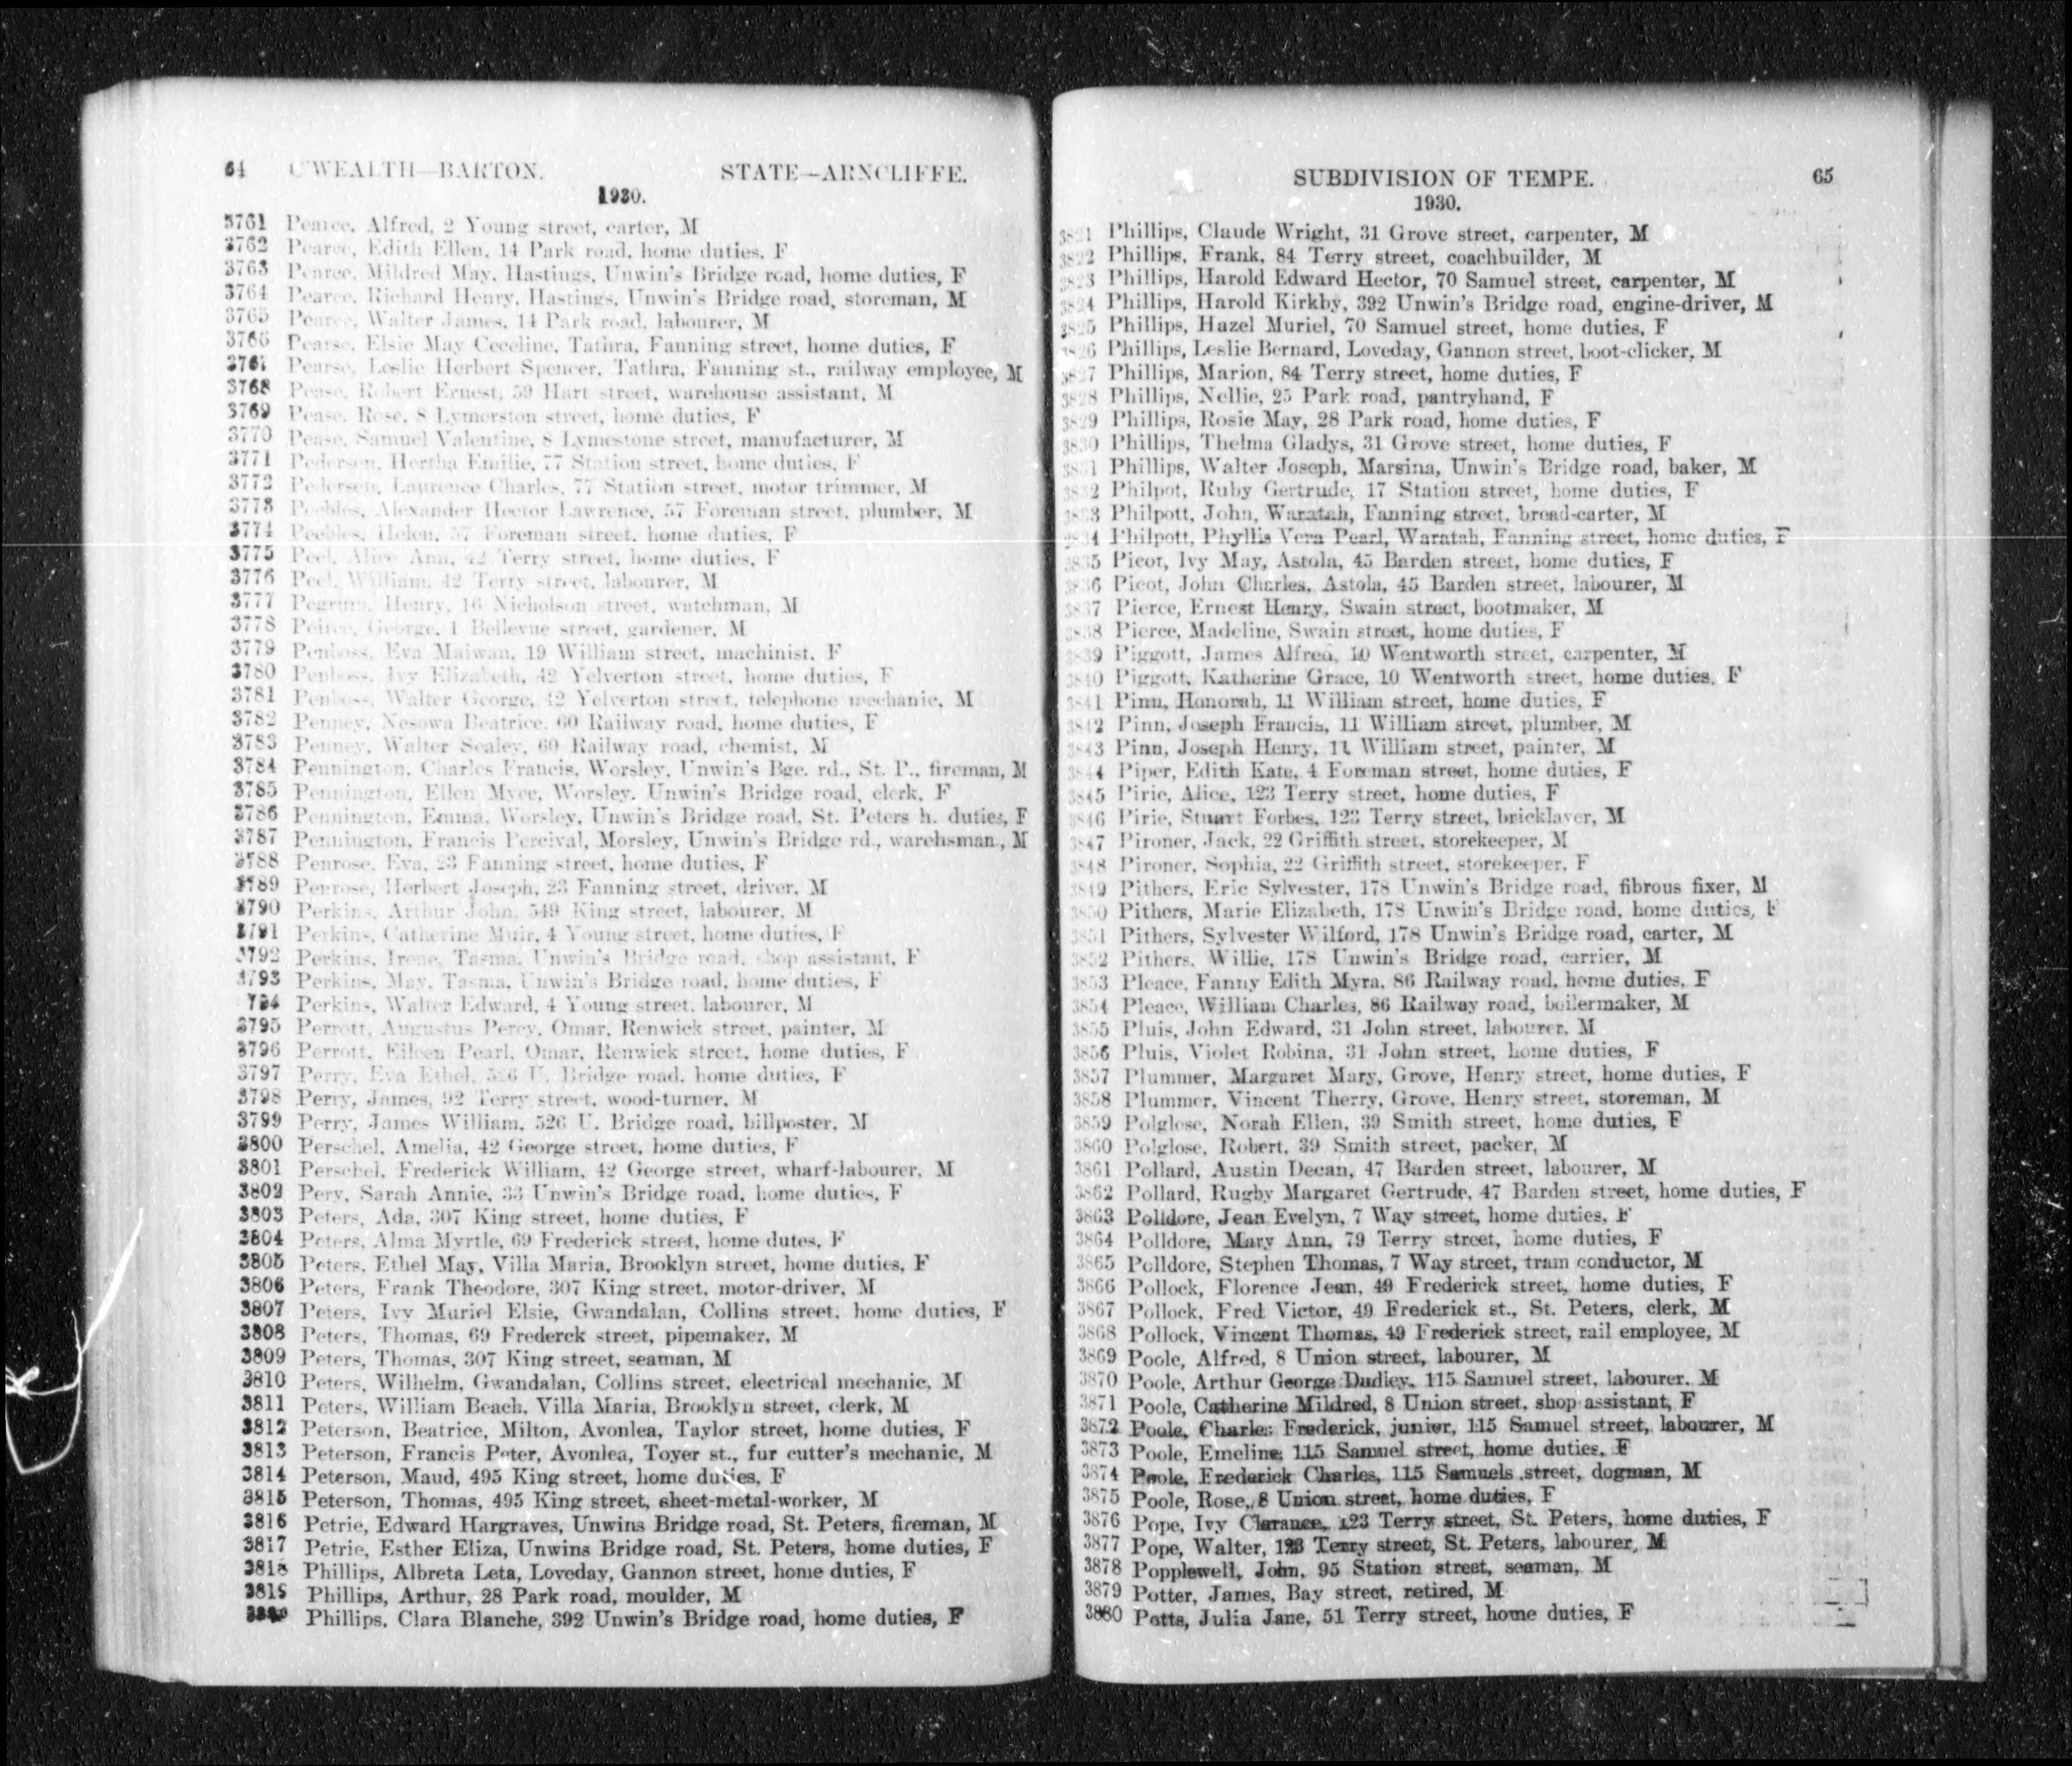 64 C'WEALTH—BARTON. STATE—ARNCLIFFE.
1930.
3761 Pearce, Alfred, 2 Young street, carter, M
3762 Pearce, Edith Ellen, 14 Park road, home duties, F
3763 Pearce, Mildred May, Hastings, Unwin's Bridge road, home duties, F
3764 Pearce, Richard Henry, Hastings, Unwin's Bridge road, storeman, M
3765 Pearce, Walter James, 14 Park road, labourer, M
3766 Pearse, Elsie May Ceceline, Tathra, Fanning street, home duties, F
3767 Pearse, Leslie Herbert Spencer, Tathra, Fanning st., railway employee, M
3768 Pease, Robert Ernest, 59 Hart street, warehouse assistant, M
3769 Pease, Rose, 8 Lymerston street, home duties, F
3770 Pease, Samuel Valentine, 8 Lymestone street, manufacturer, M
3771 Pedersen, Hertha Emilie, 77 Station street, home duties, F
3772 Pedersen, Laurence Charles, 77 Station street, motor trimmer, M
3773 Peebles, Alexander Hector Lawrence, 57 Foreman street, plumber, M
3774 Peebles, Helen, 57 Foreman street, home duties, F
3775 Peel, Alice Ann, 42 Terry street, home duties, F
3776 Peel, William, 42 Terry street, labourer, M
3777 Pegrum, Henry, 16 Nicholson street, watchman, M
3778 Peirce, George, 1 Bellevue street, gardener, M
3779 Penboss, Eva Maiwan, 19 William street, machinist, F
3780 Penboss, Ivy Elizabeth, 42 Yelverton street, home duties, F
3781 Penboss, Walter George, 42 Yelverton street, telephone mechanic, M
3782 Penney, Nesowa Beatrice, 60 Railway road, home duties, F
3783 Penney, Walter Sealey, 60 Railway road, chemist, M
3784 Pennington, Charles Francis, Worsley, Unwin's Bge. rd., St. P., fireman, M
3785 Pennington, Ellen Myee, Worsley, Unwin's Bridge road, clerk, F
3786 Pennington, Emma, Worsley, Unwin's Bridge road, St. Peters h. duties, F
3787 Pennington, Francis Percival, Morsley, Unwin's Bridge rd., warehsman., M
3788 Penrose, Eva, 23 Fanning street, home duties, F
3789 Penrose, Herbert Joseph, 23 Fanning street, driver, M
3790 Perkins, Arthur John, 549 King street, labourer, M
3791 Perkins, Catherine Muir, 4 Young street, home duties, F
3792 Perkins, Irene, Tasma, Unwin's Bridge road, shop assistant, F
3793 Perkins, May, Tasma, Unwin's Bridge road, home duties, F
794 Perkins, Walter Edward, 4 Young street, labourer, M
3795 Perrott, Augustus Percy, Omar, Renwick street, painter, M
3796 Perrott, Eileen Pearl, Omar, Renwick street, home duties, F
3797 Perry, Eva Ethel, 526 U. Bridge road, home duties, F
3798 Perry, James, 92 Terry street, wood-turner, M
3799 Perry, James William, 526 U. Bridge road, billposter, M
3800 Perschel, Amelia, 42 George street, home duties, F
3801 Perschel, Frederick William, 42 George street, wharf-labourer, M
3802 Pery, Sarah Annie, 33 Unwin's Bridge road, home duties, F
3803 Peters, Ada, 307 King street, home duties, F
3804 Peters, Alma Myrtle, 69 Frederick street, home dutes, F
3805 Peters, Ethel May, Villa Maria, Brooklyn street, home duties, F
3806 Peters, Frank Theodore, 307 King street, motor-driver, M
3807 Peters, Ivy Muriel Elsie, Gwandalan, Collins street, home duties, F
3808 Peters, Thomas, 69 Frederck street, pipemaker, M
3809 Peters, Thomas, 307 King street, seaman, M
3810 Peters, Wilhelm, Gwandalan, Collins street, electrical mechanic, M
3811 Peters, William Beach, Villa Maria, Brooklyn street, clerk, M
3812 Peterson, Beatrice, Milton, Avonlea, Taylor street, home duties, F
3813 Peterson, Francis Peter, Avonlea, Toyer st., fur cutter's mechanic, M
3814 Peterson, Maud, 495 King street, home duties, F
3815 Peterson, Thomas, 495 King street, sheet-metal-worker, M
3816 Petrie, Edward Hargraves, Unwins Bridge road, St. Peters, fireman, M
3817 Petrie, Esther Eliza, Unwins Bridge road, St. Peters, home duties, F
3818 Phillips, Albreta Leta, Loveday, Gannon street, home duties, F
3819 Phillips, Arthur, 28 Park road, moulder, M
3820 Phillips, Clara Blanche, 392 Unwin's Bridge road, home duties, F
SUBDIVISION OF TEMPE. 65
1930.
3821 Phillips, Claude Wright, 31 Grove street, carpenter, M
3822 Phillips, Frank, 84 Terry street, coachbuilder, M
3823 Phillips, Harold Edward Hector, 70 Samuel street, carpenter, M
3824 Phillips, Harold Kirkby, 392 Unwin's Bridge road, engine-driver, M
3825 Phillips, Hazel Muriel, 70 Samuel street, home duties, F
3826 Phillips, Leslie Bernard, Loveday, Gannon street, boot-clicker, M
3827 Phillips, Marion, 84 Terry street, home duties, F
3828 Phillips, Nellie, 25 Park road, pantryhand, F
3829 Phillips, Rosie May, 28 Park road, home duties, F
3830 Phillips, Thelma Gladys, 31 Grove street, home duties, F
3831 Phillips, Walter Joseph, Marsina, Unwin's Bridge road, baker, M
3832 Philpot, Ruby Gertrude, 17 Station street, home duties, F
3833 Philpott, John, Waratah, Fanning street, bread-carter, M
3834 Philpott, Phyllis Vera Pearl, Waratah, Fanning street, home duties, F
3835 Picot, Ivy May, Astola, 45 Barden street, home duties, F
3836 Picot, John Charles, Astola, 45 Barden street, labourer, M
3837 Pierce, Ernest Henry, Swain street, bootmaker, M
3838 Pierce, Madeline, Swain street, home duties, F
3839 Piggott, James Alfred, 10 Wentworth street, carpenter, M
3840 Piggott, Katherine Grace, 10 Wentworth street, home duties, F
3841 Pinn, Honorah, 11 William street, home duties, F
3842 Pinn, Joseph Francis, 11 William street, plumber, M
3843 Pinn, Joseph Henry, 11 William street, painter, M
3844 Piper, Edith Kate, 4 Foreman street, home duties, F
3845 Pirie, Alice, 123 Terry street, home duties, F
3846 Pirie, Stuart Forbes, 123 Terry street, bricklayer, M
3847 Pironer, Jack, 22 Griffith street, storekeeper, M
3848 Pironer, Sophia, 22 Griffith street, storekeeper, F
3849 Pithers, Eric Sylvester, 178 Unwin's Bridge road, fibrous fixer, M
3850 Pithers, Marie Elizabeth, 178 Unwin's Bridge road, home duties, F
3851 Pithers, Sylvester Wilford, 178 Unwin's Bridge road, carter, M
3852 Pithers, Willie, 178 Unwin's Bridge road, carrier, M
3853 Pleace, Fanny Edith Myra, 86 Railway road, home duties, F
3854 Pleace, William Charles, 86 Railway road, boilermaker, M
3855 Pluis, John Edward, 31 John street, labourer, M
3856 Pluis, Violet Robina, 31 John street, home duties, F
3857 Plummer, Margaret Mary, Grove, Henry street, home duties, F
3858 Plummer, Vincent Therry, Grove, Henry street, storeman, M
3859 Polglose, Norah Ellen, 39 Smith street, home duties, F
3860 Polglose, Robert, 39 Smith street, packer, M
3861 Pollard, Austin Decan, 47 Barden street, labourer, M
3862 Pollard, Rugby Margaret Gertrude, 47 Barden street, home duties, F
3863 Polldore, Jean Evelyn, 7 Way street, home duties, F
3864 Polldore, Mary Ann, 79 Terry street, home duties, F
3865 Polldore, Stephen Thomas, 7 Way street, tram conductor, M
3866 Pollock, Florence Jean, 49 Frederick street, home duties, F
3867 Pollock, Fred Victor, 49 Frederick st., St. Peters, clerk, M
3868 Pollock, Vincent Thomas, 49 Frederick street, rail employee, M
3869 Poole, Alfred, 8 Union street, labourer, M
3870 Poole, Arthur George Dudley, 115 Samuel street, labourer, M
3871 Poole, Catherine Mildred, 8 Union street, shop assistant, F
3872 Poole, Charles Frederick, junior, 115 Samuel street, labourer, M
3873 Poole, Emeline, 115 Samuel street, home duties, F
3874 Poole, Frederick Charles, 115 Samuels street, dogman, M
3875 Poole, Rose, 8 Union street, home duties, F
3876 Pope, Ivy Clarance, 123 Terry street, St. Peters, home duties, F
3877 Pope, Walter, 123 Terry street, St. Peters, labourer, M
3878 Popplewell, John, 95 Station street, seaman, M
3879 Potter, James, Bay street, retired, M
3880 Potts, Julia Jane, 51 Terry street, home duties, F